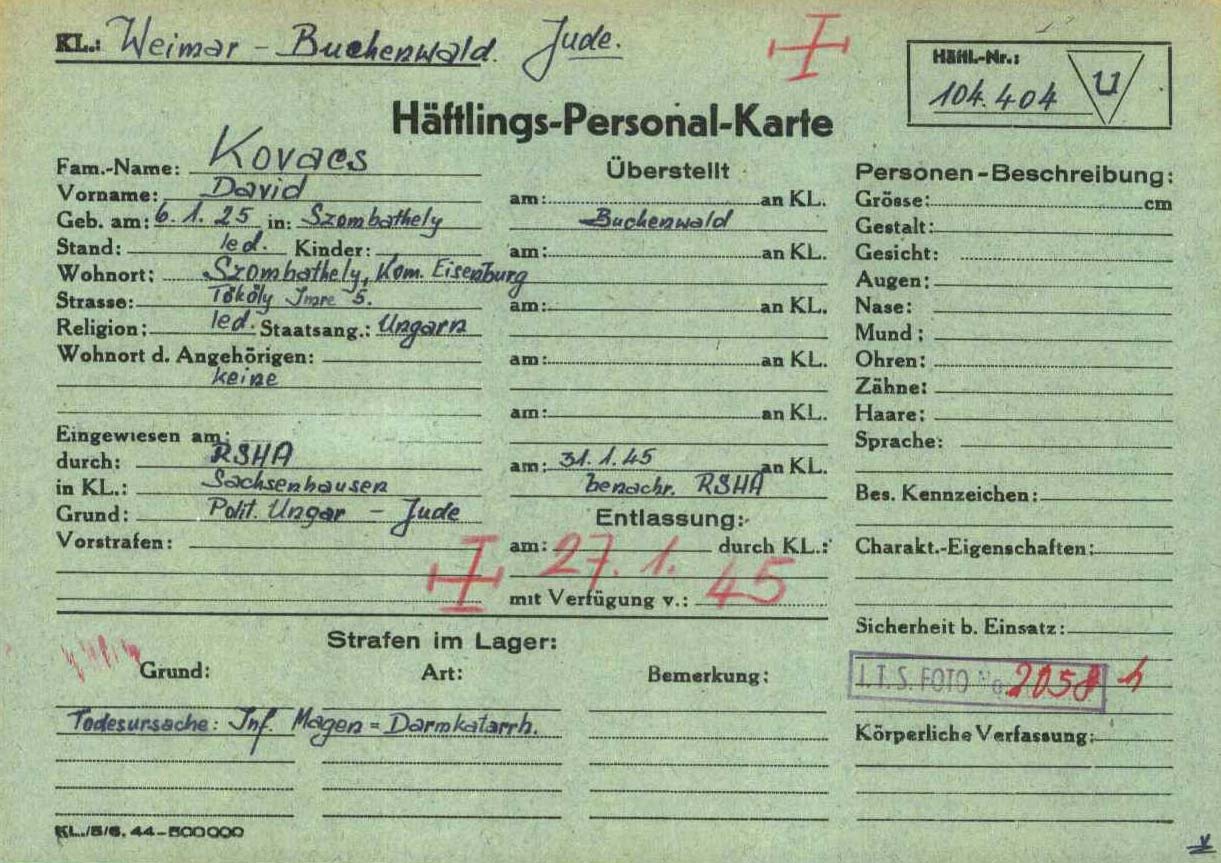 KL.: Weimar - Buchenwald. Jude.
Häftl.-Nr.:
104.404 U
Häftlings-Personal-Karte
Fam.-Name: Kovacs
Vorname: David
Geb. am: 6.1.25 in: Szombathely
Stand: led. Kinder:
Wohnort: Szombathely, Kom. Eisenburg
Strasse: Tököly Imre 5.
Religion: led. Staatsang.: Ungarn
Wohnort d. Angehörigen:
keine
Eingewiesen am:
durch: RSHA
in KL.: Sachsenhausen
Grund: Polit. Ungar - Jude
Vorstrafen:
Überstellt
am: an KL.
Buchenwald
am: an KL.
am: an KL.
am: an KL.
am: an KL.
am: 31.1.45 an KL.
benachr. RSHA
Entlassung:
am: 27.1. durch KL.:
mit Verfügung v.: 45
Personen-Beschreibung:
Grösse: cm
Gestalt:
Gesicht:
Augen:
Nase:
Mund:
Ohren:
Zähne:
Haare:
Sprache:
Bes. Kennzeichen:
Charakt.-Eigenschaften:
Sicherheit b. Einsatz:
I.T.S. FOTO No. 2058
Körperliche Verfassung:
Strafen im Lager:
Grund: Art: Bemerkung:
Todesursache: Inf. Magen=Darmkatarrh.
KL./5/6. 44-500000